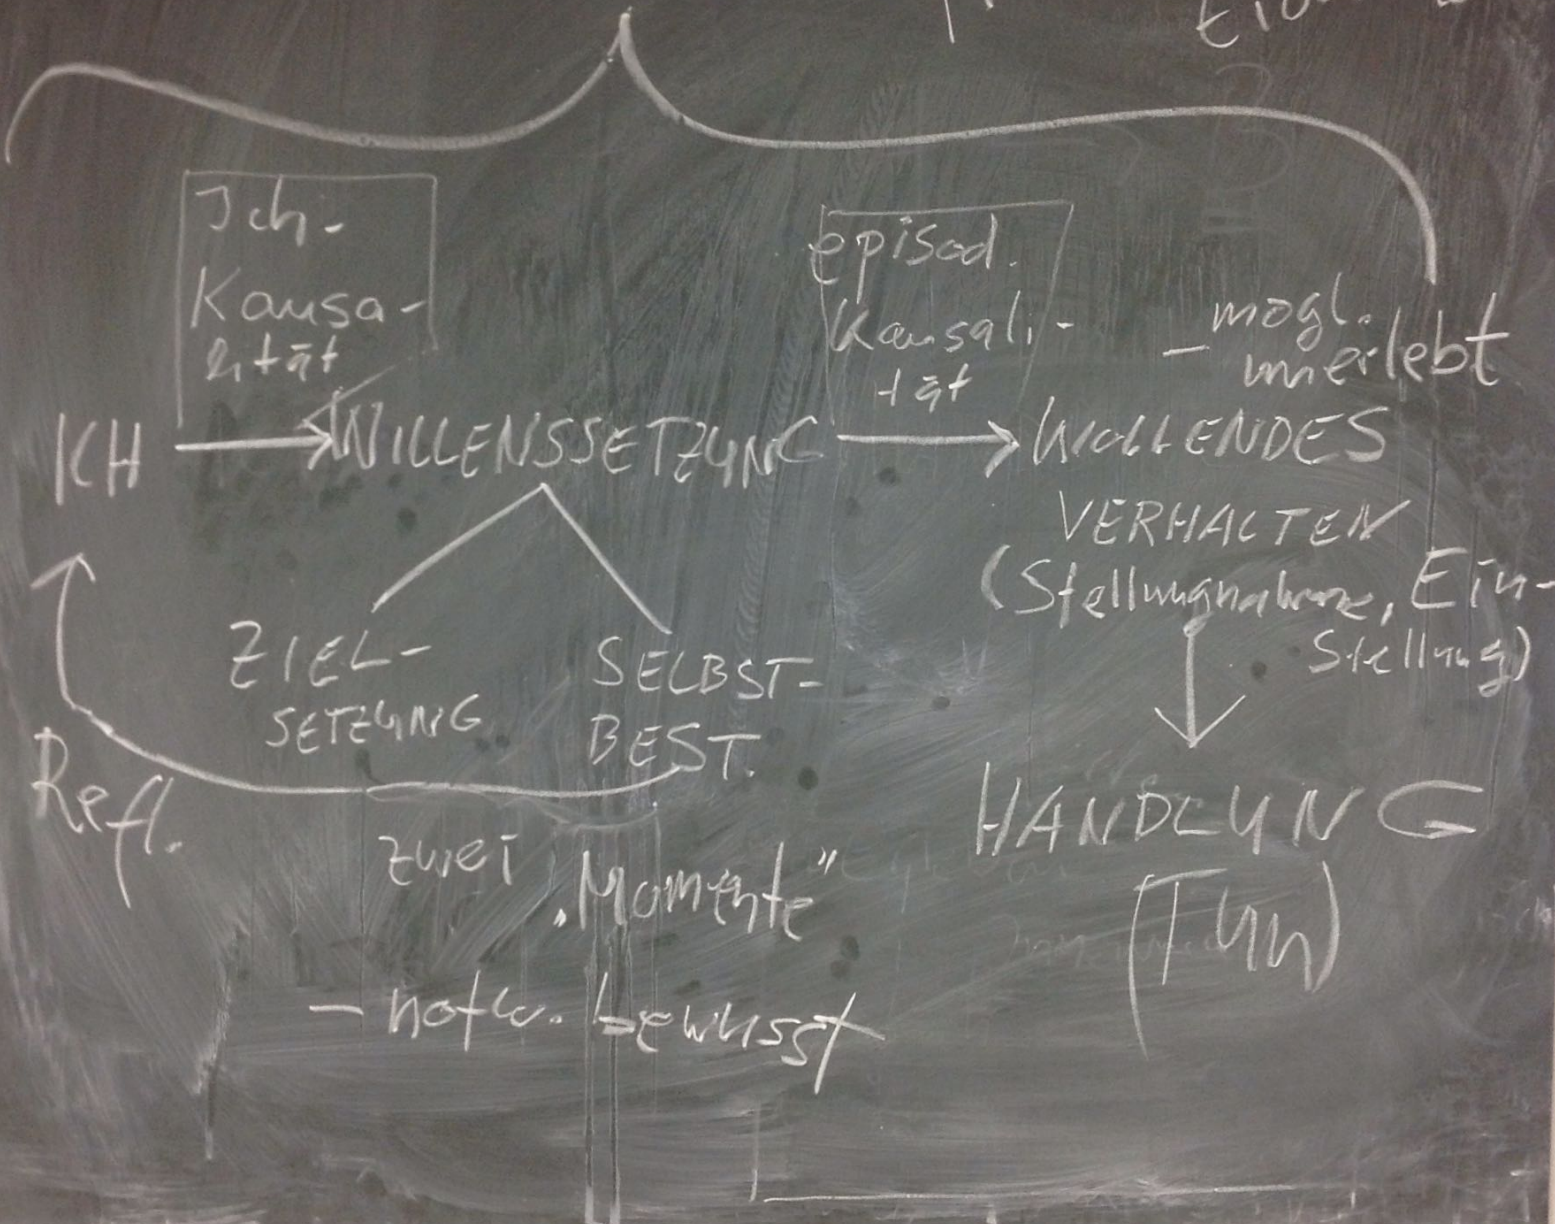 Ich-
Kausa-
lität
episod.
Kausali-
tät
- mögl.
unerlebt
ICH
WILLENSSETZUNG
WOLLENDES
VERHALTEN
(Stellungnahme, Ein-
stellung)
ZIEL-
SETZUNG
SELBST-
BEST.
Refl.
zwei „Momente"
HANDLUNG
(Tun)
- notw. bewusst